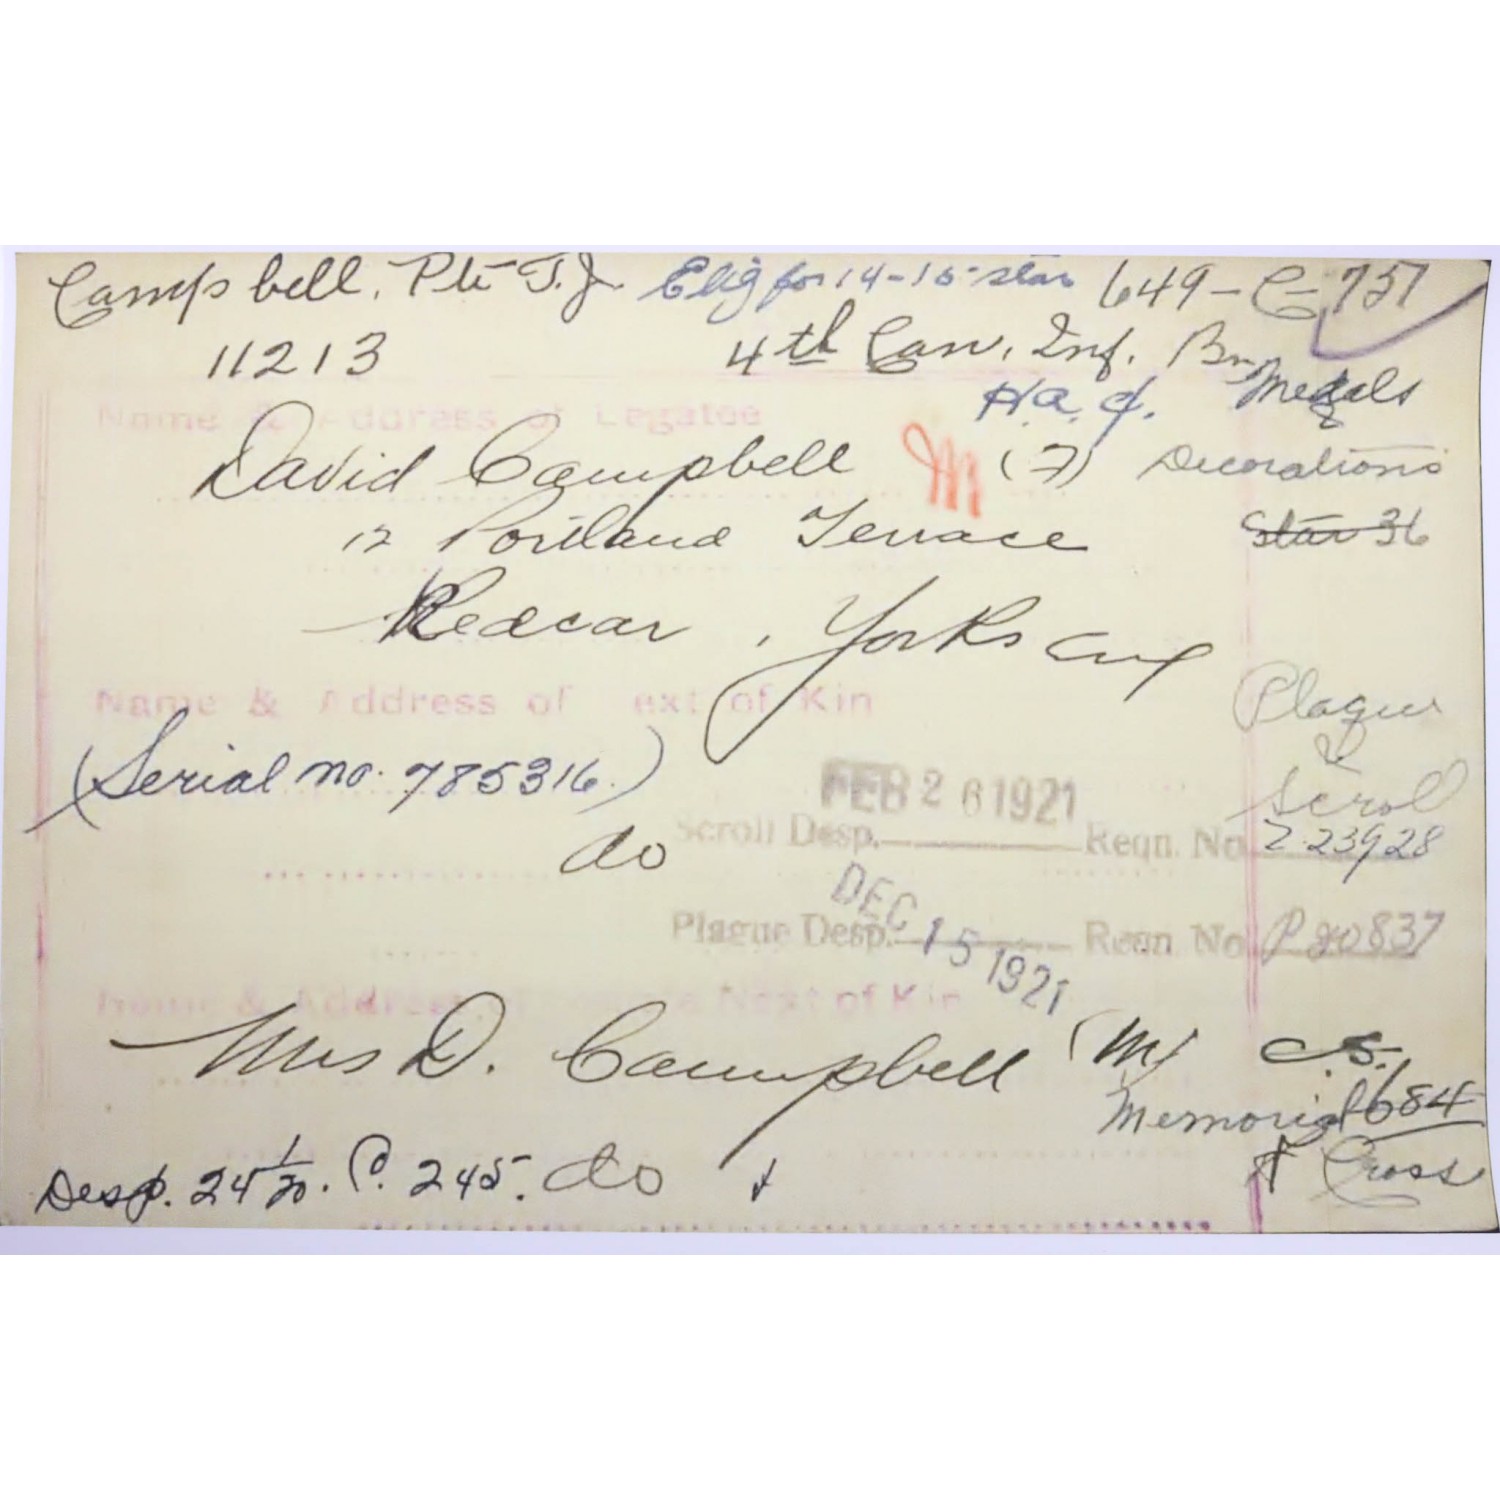 Campbell, Pte T.J. Elig for 14-15 star 649-C-757
11213 4th Can. Inf. Bn
Medals
Name & Address of Legatee
David Campbell M (F) Decorations
12 Portland Terrace Star 36
Redcar, Yorks Eng
Name & Address of ext of Kin Plaque
& Scroll
(Serial no. 785316.)
FEB 26 1921
do Scroll Desp. Reqn. No Z.23928
DEC 15 1921
Plaque Desp. Reqn. No P 20837
Name & Address Next of Kin
Mrs D. Campbell (M) C.S.
Memorial 684
Desp. 24/1/20. P. 245. do Cross